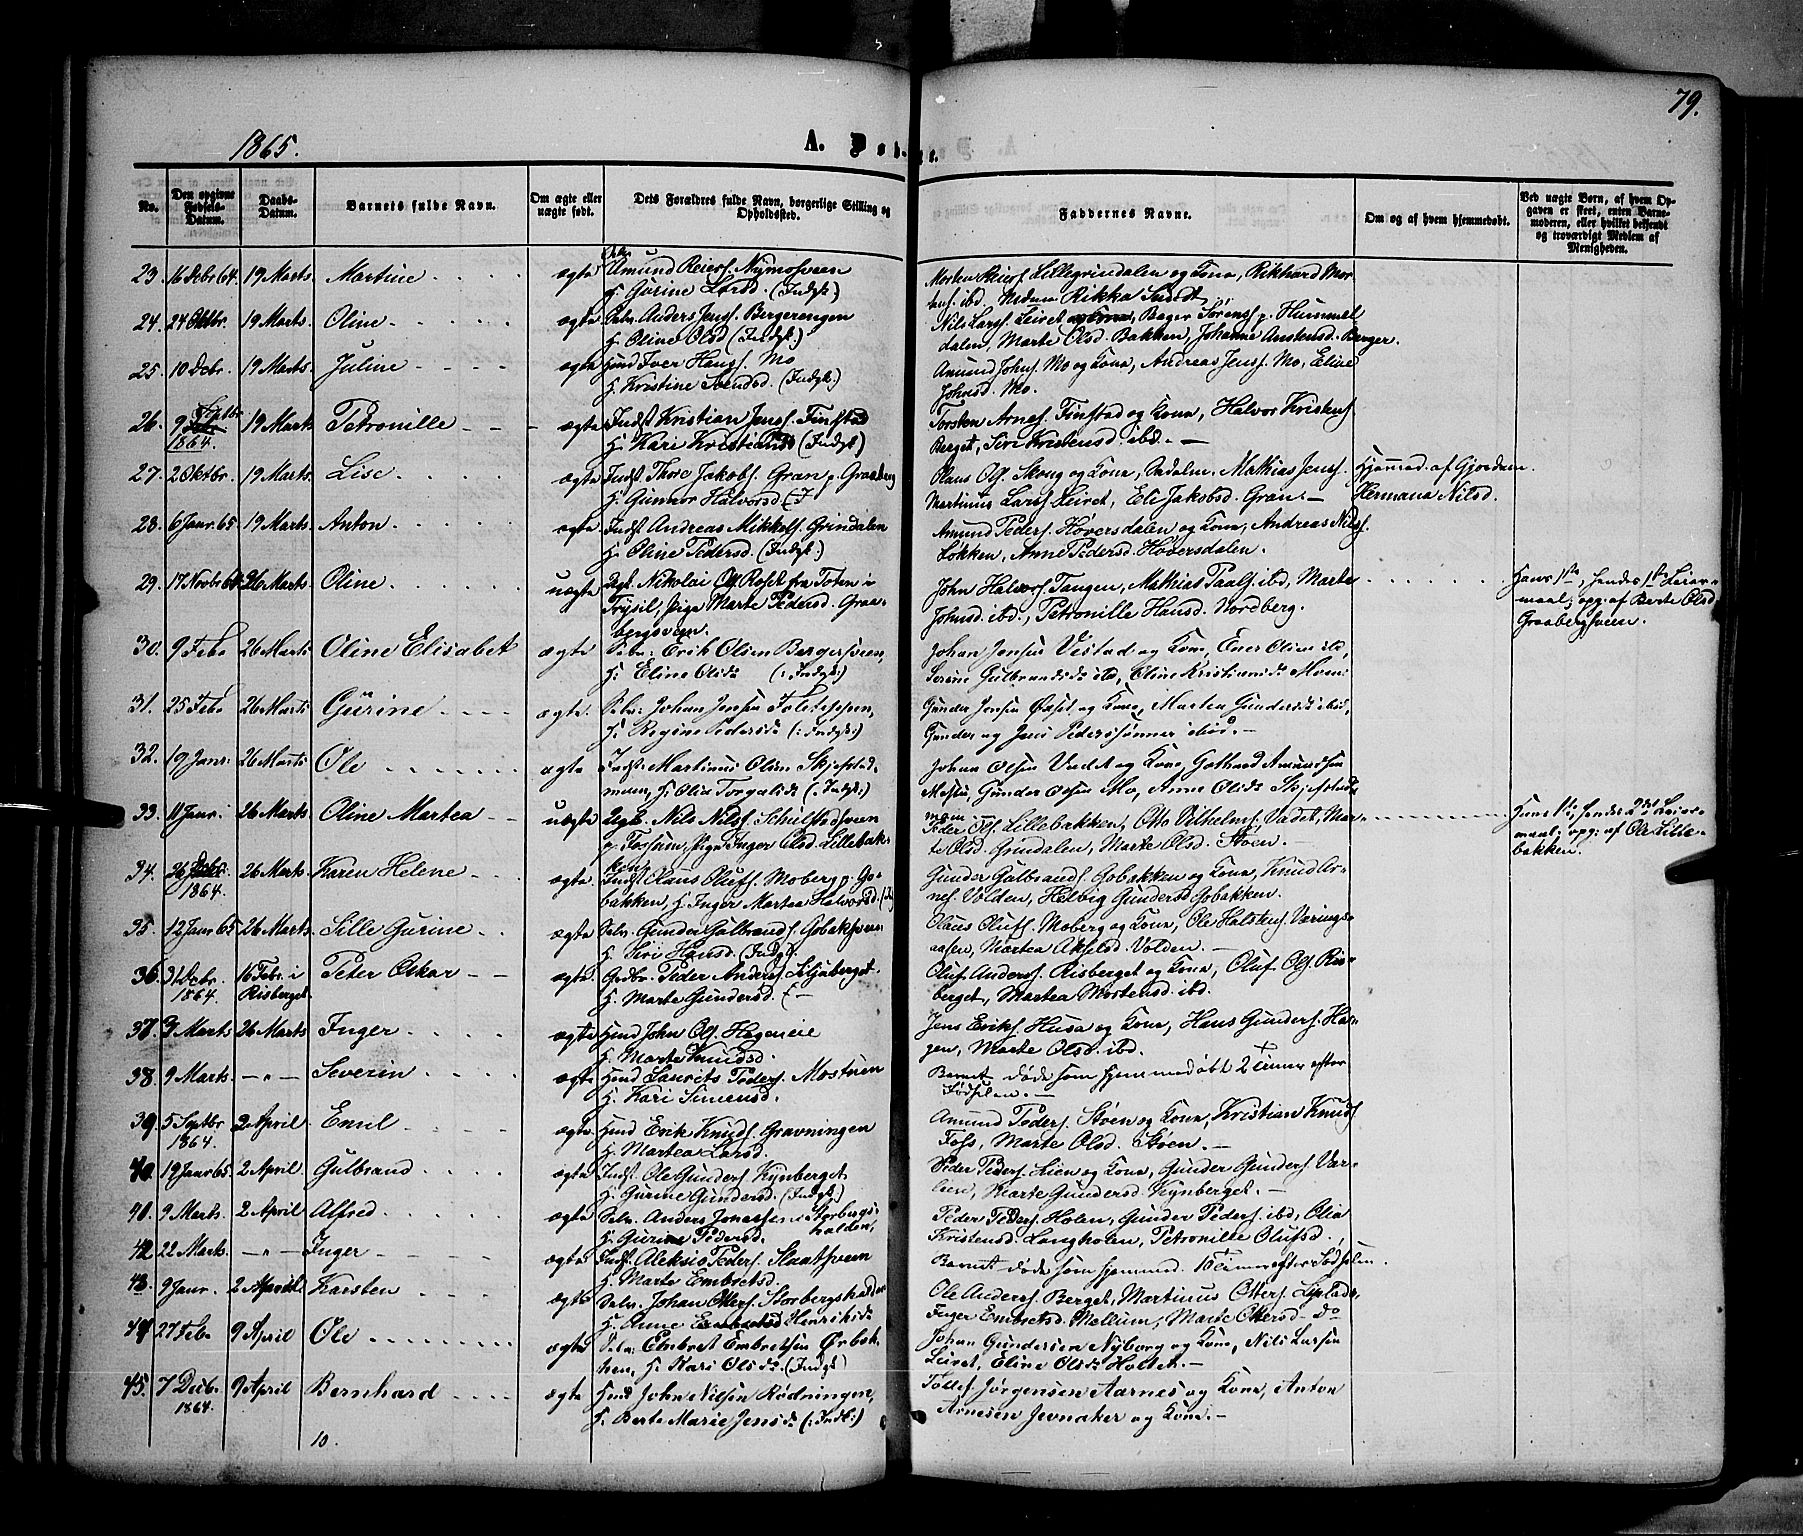 79.
1865.
A. Døbte.
No.
Den opgivne Fødsels-Datum.
Daabs-Datum.
Barnets fulde Navn.
Om ægte eller uægte født.
Dets Forældres fulde Navn, borgerlige Stilling og Opholdssted.
Faddernes Navne.
Om og af hvem hjemmedøbt.
Ved uægte Børn, af hvem Opgaven er skeet, enten Barnemoderen, eller hvilket bekjendt og troværdigt Medlem af Menigheden.
23. 16 Decbr 64. 19 Marts. Martine ægte Amund Reiers. Nymosveen
H. Gurine Larsd. (Indgk.)
Morten Reiers. Lillegrindalen og Kone, Rikhard Mortens. ibd. Rikka
24. 24 Oktbr. 19 Marts. Oline ægte Selv. Anders Jens. Bergerengen
H. Oline Olsd (Indgk.)
Nils Lars. Leiret, Bager Sørens. p. Hummeldalen, Marte Olsd. Bakken, Johanne Amundsd. Berger.
25. 10 Decbr. 19 Marts. Juline ægte Hmd Iver Hans. Mo
H. Kristine Svendsd. (Indgk.)
Amund Johns. Mo og Kone, Andreas Jens. Mo, Eline Johnsd. Mo.
26. 9 Septbr 1864. 19 Marts Petronille ægte Indst Kristian Jens. Finstad
H. Kari Kristiansd (Indgk.)
Torsten Arnes. Finstad og Kone, Halvor Kristens. Berget, Siri Kristensd. ibd. —
27. 2 Oktbr. 19 Marts. Lise ægte Indst. Thore Jakobs. Gran p. Graaberg
H. Gunnor Halvorsd. (—
Olaus Ols. Skoug og Kone, Mathias Jens. Martinus Lars. Leiret, Eli Jakobsd. Gran. —
Hjemmed. af Gjordem. Hermana Nilsd.
28. 6 Janr. 65 19 Marts. Anton ægte Indst. Andreas Mikkels. Grindalen
H. Oline Pedersd. (Indgk.)
Amund Peders. Hoversdalen og Kone, Andreas Nils. Løkken, Anne Pedersd. Hoversdalen.
29. 17 Novbr 64 26 Marts. Oline uægte Ugk. Nikolai Ols. Roset fra Toten i
Trysil, Pige Marte Pedersd. Graabergsveen.
John Halvors. Tangen, Mathias Paals. ibd, Marte Johnsd. ibd., Petronille Hansd. Nordberg.
Hans 1ste, hendes 1ste Leiermaal; opg. af Berte Olsd Graabergsveen.
30. 9 Febr 26 Marts Oline Elisabet ægte Selv: Erik Olsen Bergersveen,
H. Eline Olsd: (: Indgk:)
Johan Jensen Vestad og Kone, Ener Olsen ibd, Serine Gulbrandsd: ibd, Oline Kristiansd: Moen.
31. 25 Febr 26 Marts Gurine ægte. Selv: Johan Jensen
H. Regine Pedersd: (: Indgk:)
Gunder Jensen og Kone, Martea Gundersd: ibid, Gunder og Jens Pederssønner ibid. —
32. 19 Janr: 26 Marts Ole ægte Indst: Martinus Olsen Skjefstadmoen, H. Olia Torgalsd: (: Indgk:)
Johan Olsen Vadet og Kone, Gothard Amundsen Gunder Olsen Mo, Anne Olsd: Skjefstadmoen.
33. 11 Janr: 26 Marts Oline Martea uægte Ugk. Nils Nils.
p. Fossum, Pige Inger Olsd. Lillebakken
Peder Ols. Lillebakken, Otto Vilhelms. Vadet, Marte Olsd. Grindalen, Marte Olsd. Støen. —
Hans 1ste, hendes 2det Leiermaal; opg: af Ole Lillebakken.
34. 26 1864. 26 Marts. Karen Helene ægte Indst. Olaus Olufs. Moberg p. Gobakken, H. Inger Martea Halvorsd.
Gunder Gulbrands. Gobakken og Kone, Knud Arnes. Volden, Helvig Gundersd Gobakken.
35. 12 Janr 65 26 Marts. Sille Gurine ægte Selv. Gunder Gulbrands. Gobaksveen
H. Siri Hansd. (Indgk.
Olaus Olufs. Moberg og Kone, Ole Halstens. Væringsaasen, Martea Akselsd. Volden. —
36. 31 Decbr. 1864. 16 Febr. i Risberget Peter Oskar ægte Grdbr. Peder Anders. Siljuberget.
H. Marte Gundersd. (—
Oluf Anders. Risberget og Kone, Oluf Ols. Risberget, Martea Mortensd. ibd.
37. 3 Marts 26 Marts Inger ægte Hmd John Ols. Hageneie
H. Marte Knudsd.
Jens Eriks. Husa og Kone, Hans Gunders. Hagen, Marte Olsd. ibd.
38. 9 Marts. — „ — Severin ægte Hmd Laurits Peders. Mostuen
H. Kari Simensd.
Barnet døde som hjemmedøbt 2 Timer efter Fødselen. —
39. 5 Septbr 1864. 2 April Emil ægte Hmd Erik Knuds. Gravningen
H. Martea Larsd.
Amund Peders. Støen og Kone, Kristian Knuds. Foss, Marte Olsd. Støen. —
40. 19 Janr 65 2 April Gulbrand ægte Indst. Ole Gunders. Kynberget.
H. Gurine Gundersd. (Indgk.)
Peder Peders. Lien og Kone, Gunder Gunders. Varlien, Marte Gundersd. Kynberget. —
41. 9 Marts. 2 April Alfred ægte Selv. Anders Jonas. Storbergshalden,
H. Gurine Pedersd.
Peder Peders. Holen, Gunder Peders. ibd, Olia Kristensd. Langholen, Petronille Olufsd.
42 22 Marts. — „ — Inger ægte Indst. Aleksis Peders. Slaatsveen
H. Marte Embretsd.
Barnet døde som hjemmed. Timer efter Fødselen.
43. 9 Janr. 2 April Karsten ægte Selv. Johan Otters. Storbergshalden
H. Anne Henriksd:
Ole Anders. Berget, Martinus Otters. Inger Embretsd. Mellum, Marte Ottersd. Do
44 27 Febr 9 April Ole ægte Selv: Embret Embretsen Ørbækken, H. Kari Olsd: (Indgk)
Johan Gundersen Nyborg og Kone, Nils Larsen Leiret, Eline Olsd: Holtet. —
45. 7 Decbr. 1864. 9 April Bernhard ægte Hmd John Nilsen Rødningen,
H. Berte Marie Jensd: (: Indk:)
Tollef Jørgensen Aarnes og Kone, Anton Arnesen Jevnaker og Kone. —
10.